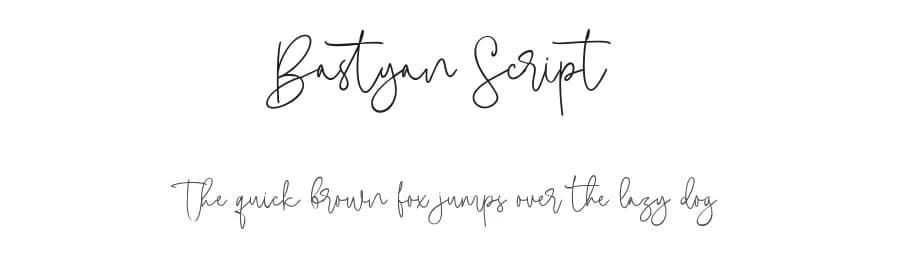 Bastyan Script
The quick brown fox jumps over the lazy dog